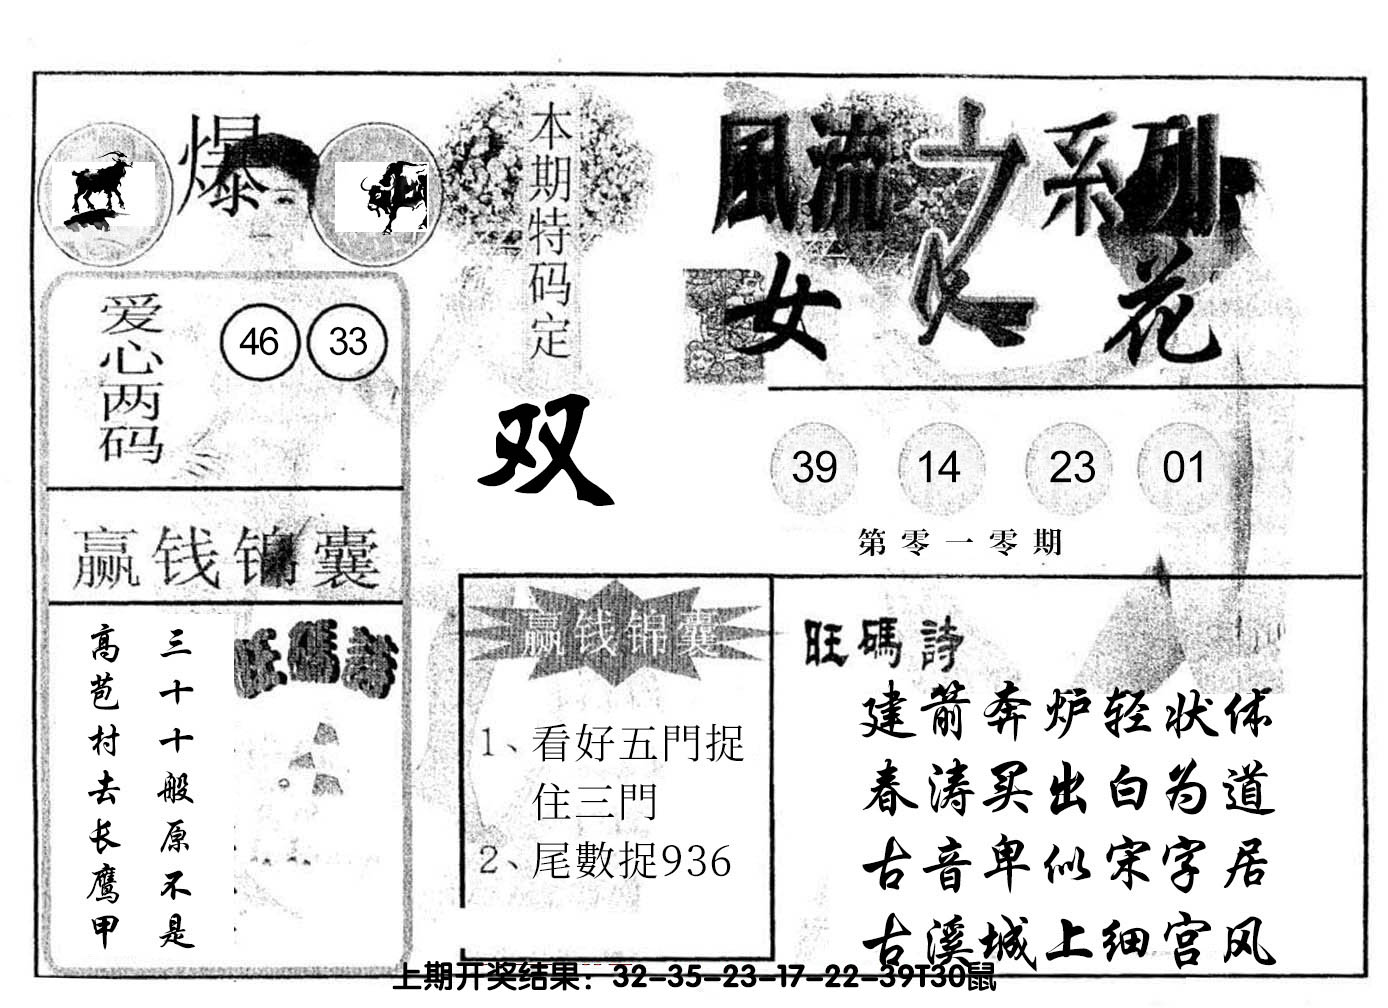 爆
本期特码定
双
風流之系列
女人花
爱心两码
46 33
39 14 23 01
第零一零期
赢钱锦囊
三十十般原不是
高苞村去长鹰甲
旺碼詩
赢钱锦囊
1、看好五門捉
住三門
2、尾數捉936
旺碼詩
建箭奔炉轻状体
春涛买出白为道
古音卑似宋字居
古溪城上细宫风
上期开奖结果：32-35-23-17-22-39T30鼠